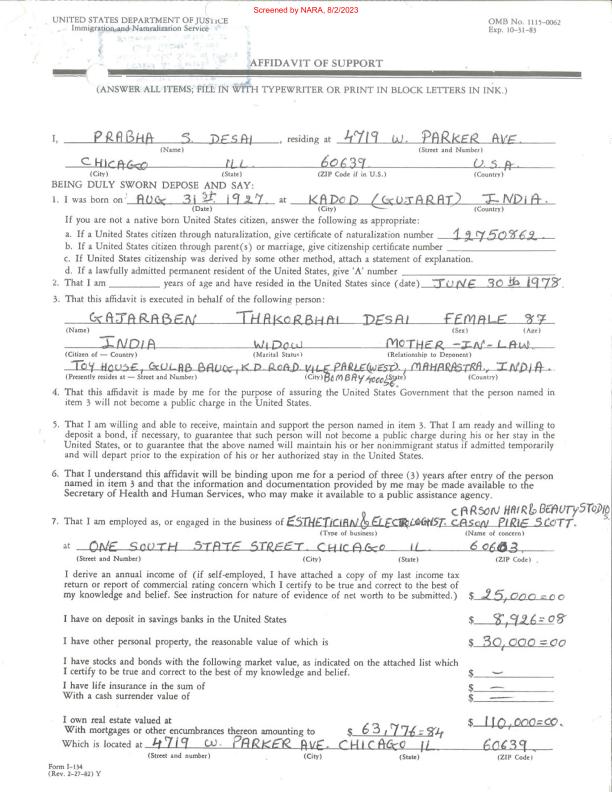 Screened by NARA, 8/2/2023
UNITED STATES DEPARTMENT OF JUSTICE
Immigration and Naturalization Service
OMB No. 1115-0062
Exp. 10-31-83
AFFIDAVIT OF SUPPORT
(ANSWER ALL ITEMS; FILL IN WITH TYPEWRITER OR PRINT IN BLOCK LETTERS IN INK.)
I, PRABHA S. DESAI, residing at 4719 W. PARKER AVE.
(Name) (Street and Number)
CHICAGO ILL. 60639 U.S.A.
(City) (State) (ZIP Code if in U.S.) (Country)
BEING DULY SWORN DEPOSE AND SAY:
1. I was born on AUG 31st 1927 at KADOD (GUJARAT) INDIA.
(Date) (City) (Country)
If you are not a native born United States citizen, answer the following as appropriate:
a. If a United States citizen through naturalization, give certificate of naturalization number 12750862.
b. If a United States citizen through parent(s) or marriage, give citizenship certificate number
c. If United States citizenship was derived by some other method, attach a statement of explanation.
d. If a lawfully admitted permanent resident of the United States, give 'A' number
2. That I am years of age and have resided in the United States since (date) JUNE 30th 1978.
3. That this affidavit is executed in behalf of the following person:
GAJARABEN THAKORBHAI DESAI FEMALE 87
(Name) (Sex) (Age)
INDIA WIDOW MOTHER-IN-LAW
(Citizen of — Country) (Marital Status) (Relationship to Deponent)
TOY HOUSE, GULAB BAUG, K.D. ROAD VILE PARLE (WEST), MAHARASTRA, INDIA.
(Presently resides at — Street and Number) (City) BOMBAY 400056. (State) (Country)
4. That this affidavit is made by me for the purpose of assuring the United States Government that the person named in
item 3 will not become a public charge in the United States.
5. That I am willing and able to receive, maintain and support the person named in item 3. That I am ready and willing to
deposit a bond, if necessary, to guarantee that such person will not become a public charge during his or her stay in the
United States, or to guarantee that the above named will maintain his or her nonimmigrant status if admitted temporarily
and will depart prior to the expiration of his or her authorized stay in the United States.
6. That I understand this affidavit will be binding upon me for a period of three (3) years after entry of the person
named in item 3 and that the information and documentation provided by me may be made available to the
Secretary of Health and Human Services, who may make it available to a public assistance agency.
CARSON HAIR & BEAUTY STUDIO
7. That I am employed as, or engaged in the business of ESTHETICIAN & ELECTROLOGIST. CASON PIRIE SCOTT.
(Type of business) (Name of concern)
at ONE SOUTH STATE STREET. CHICAGO IL 60603
(Street and Number) (City) (State) (ZIP Code)
I derive an annual income of (if self-employed, I have attached a copy of my last income tax
return or report of commercial rating concern which I certify to be true and correct to the best of
my knowledge and belief. See instruction for nature of evidence of net worth to be submitted.) $ 25,000=00
I have on deposit in savings banks in the United States $ 8,926=08
I have other personal property, the reasonable value of which is $ 30,000=00
I have stocks and bonds with the following market value, as indicated on the attached list which
I certify to be true and correct to the best of my knowledge and belief. $ —
I have life insurance in the sum of $ —
With a cash surrender value of $ —
I own real estate valued at $ 110,000=00.
With mortgages or other encumbrances thereon amounting to $ 63,776=84
Which is located at 4719 W. PARKER AVE. CHICAGO IL 60639
(Street and number) (City) (State) (ZIP Code)
Form I-134
(Rev. 2-27-82) Y